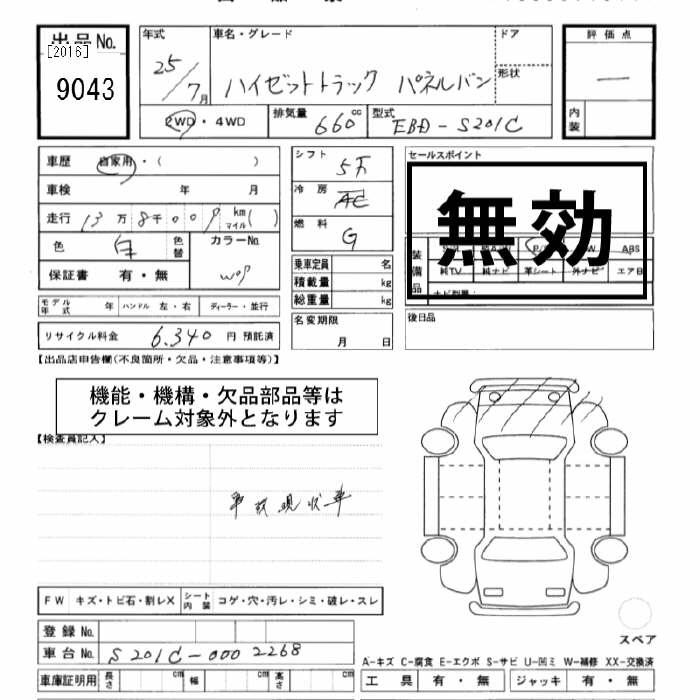 出品No.
[2016]
9043
年式 車名・グレード ドア 評価点
25/7月 ハイゼットトラック パネルバン 形状 —
2WD・4WD 排気量 660cc 型式 EBD-S201C 内装
車歴 自家用・( ) シフト 5F セールスポイント
車検 年 月 冷房 AC
無効
走行 13万8千009km マイル( ) 燃料 G
色 白 色替 カラーNo. W09
保証書 有・無 乗車定員 名
装備品 ABS
純TV 純ナビ 革シート 外ナビ エアB
積載量 kg
総重量 kg
モデル年式 年 ハンドル 左・右 ディーラー・並行 名変期限 月 日 後日品
リサイクル料金 6.340 円 預託済
【出品店申告欄(不良箇所・欠品・注意事項等)】
機能・機構・欠品部品等は
クレーム対象外となります
【検査員記入】
事故現状車
FW キズ・トビ石・割レX シート内装 コゲ・穴・汚レ・シミ・破レ・スレ
登録No.
スペア
車台No. S201C-0002268
A-キズ C-腐食 E-エクボ S-サビ U-凹ミ W-補修 XX-交換済
車庫証明用 長さ cm 幅 cm 高さ cm 工具 有・無 ジャッキ 有・無